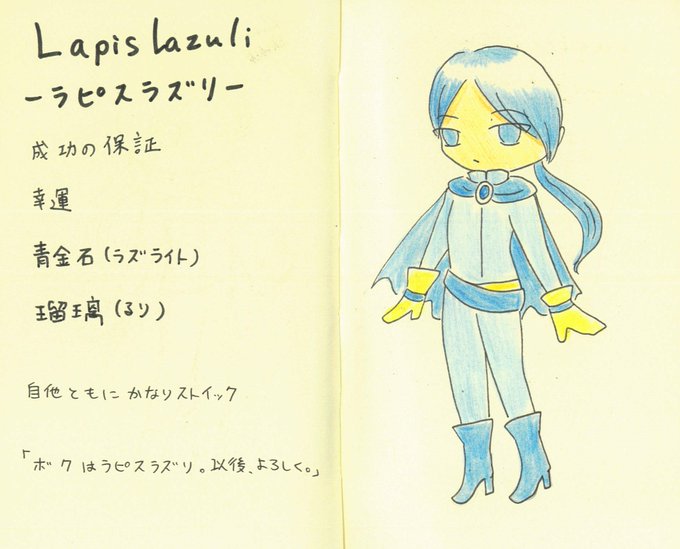 Lapis Lazuli
ーラピスラズリー
成功の保証
幸運
青金石(ラズライト)
瑠璃(るり)
自他ともにかなりストイック
「ボクはラピスラズリ。以後、よろしく。」